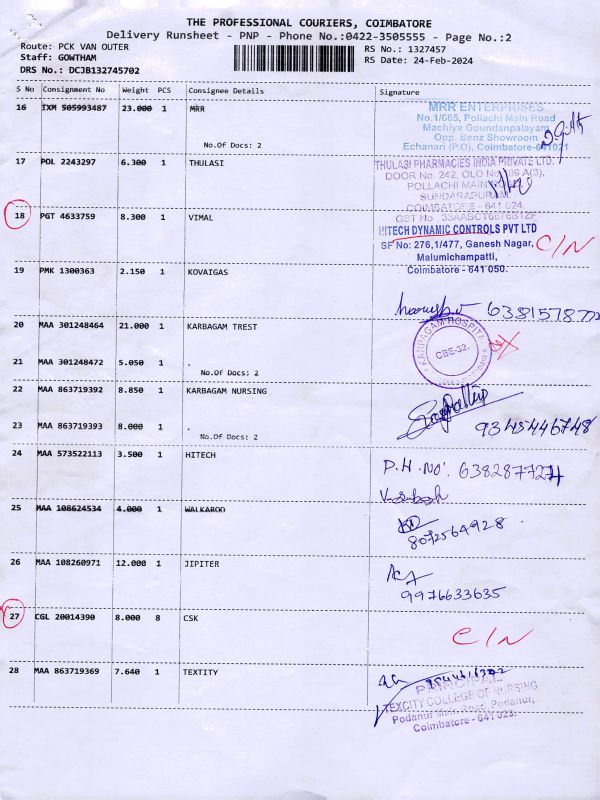 THE PROFESSIONAL COURIERS, COIMBATORE
Delivery Runsheet - PNP - Phone No.:0422-3505555 - Page No.:2
Route: PCK VAN OUTER
RS No.: 1327457
Staff: GOWTHAM
RS Date: 24-Feb-2024
DRS No.: DCJB132745702
S No Consignment No Weight PCS Consignee Details Signature
16 IXM 505993487 23.000 1 MRR
No.Of Docs: 2
MRR ENTERPRISES
No.1/665, Pollachi Main Road
Machiya Goundanpalayam
Opp. Benz Showroom
Echanari (P.O), Coimbatore-641021
17 POL 2243297 6.300 1 THULASI
THULASI PHARMACIES INDIA PRIVATE LTD.
DOOR No. 242, OLD No. 109 A(3),
POLLACHI MAIN
SUNDARAPURAM,
COIMBATORE - 641 024.
GST No
18 PGT 4633759 8.300 1 VIMAL
HITECH DYNAMIC CONTROLS PVT LTD
SF No: 276,1/477, Ganesh Nagar,
Malumichampatti,
Coimbatore - 641 050.
C/N
19 PMK 1300363 2.150 1 KOVAIGAS
20 MAA 301248464 21.000 1 KARBAGAM TREST
CBE-32.
21 MAA 301248472 5.050 1 .
No.Of Docs: 2
22 MAA 863719392 8.850 1 KARBAGAM NURSING
9345446748
23 MAA 863719393 8.000 1 .
No.Of Docs: 2
24 MAA 573522113 3.500 1 HITECH
P.H.NO:
25 MAA 108624534 4.000 1 WALKAROO
8072564928
26 MAA 108260971 12.000 1 JIPITER
9976633635
27 CGL 20014390 8.000 8 CSK
C/N
28 MAA 863719369 7.640 1 TEXTITY
PRINCIPAL
TEXCITY COLLEGE OF NURSING
Podanur Main Road, Podanur,
Coimbatore - 641 023.